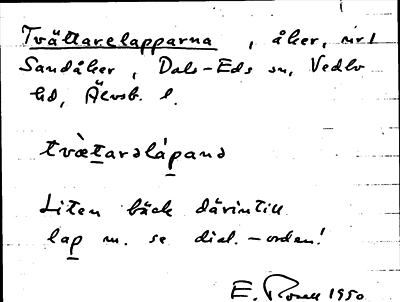 Tvättarelapparna, åker, nr 1
Sandåker, Dals-Eds sn, Vedbo
hd, Älvsb. l.
tvæ̀tarəlápanə
Liten bäck därintill
lap m. se dial.-orden!
E. 1950